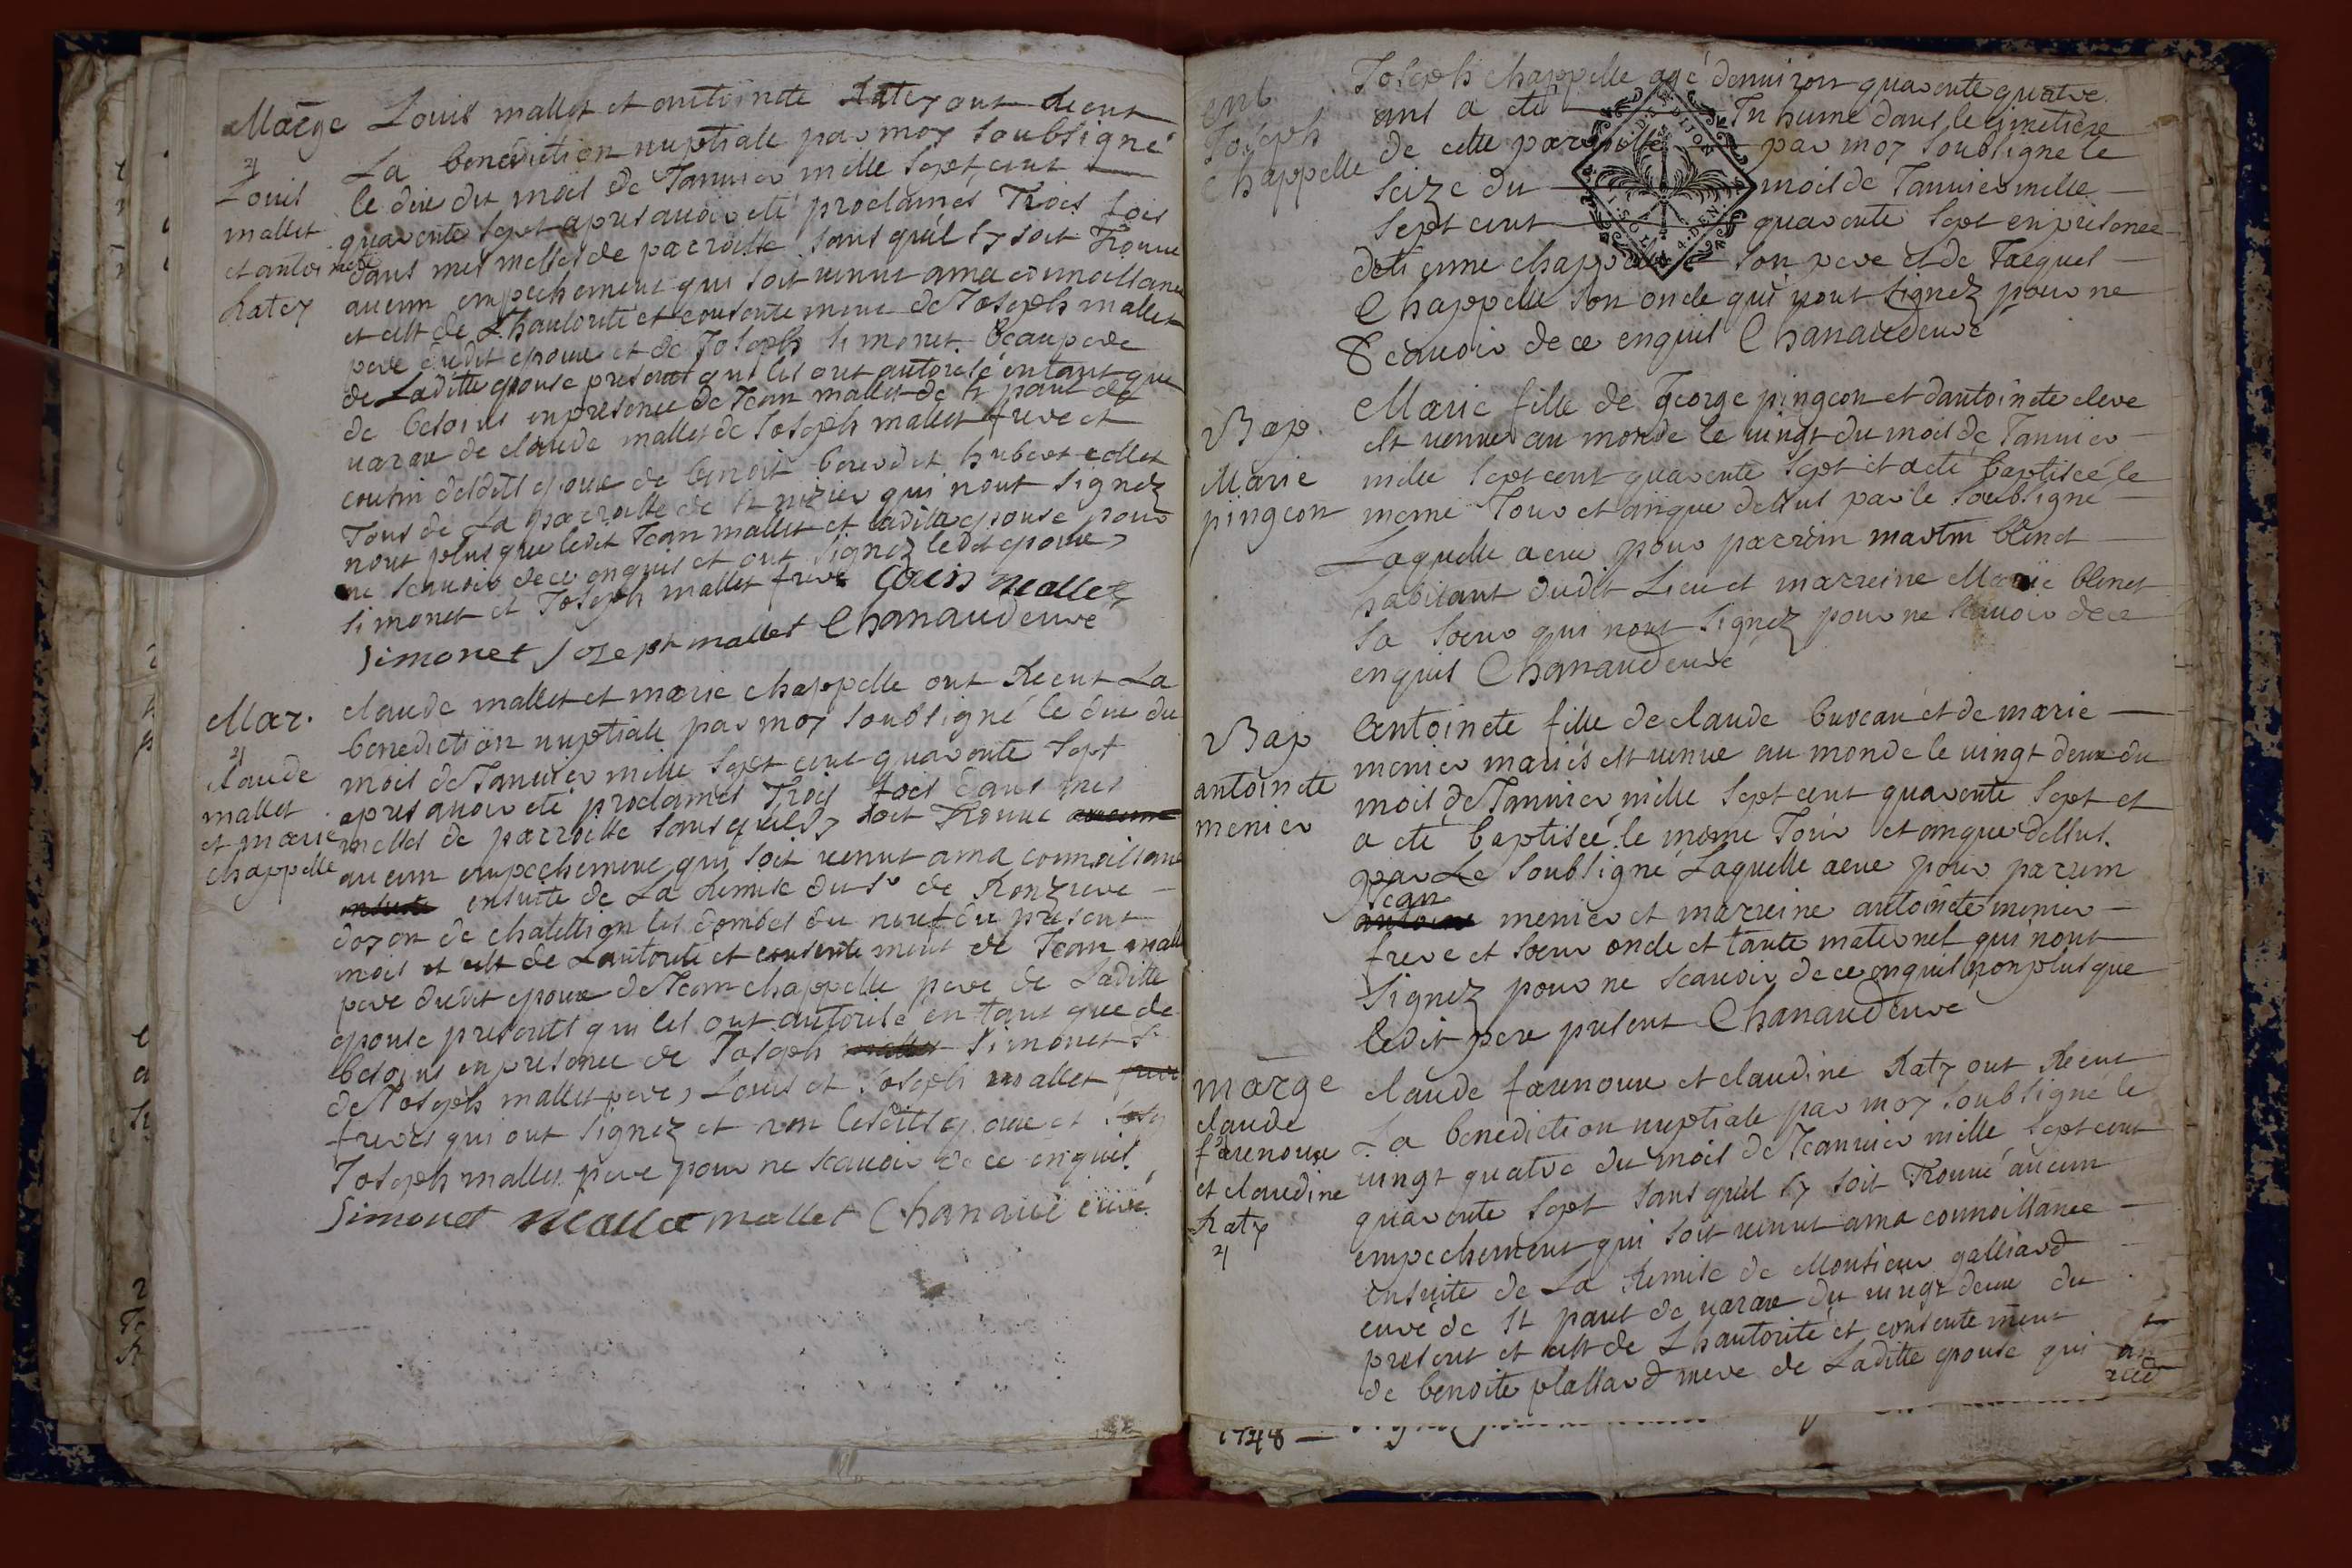 Marge
Louis
mallet
et antoinete
Ratey
Louis mallet et antoinete Ratey ont Receut
La benediction nuptiale par moy soubsigné
le dix du mois de Janvier mille sept cent
quarente sept apres avoir eté proclamés Trois fois
dans mes messes de parroisse sans qu'il s'y soit Trouve
aucun empechement qui soit venut a ma connoissance
et cest de L'hautorité et consentement de Joseph mallet
pere dudit epoux et de Joseph simonet beaupere
de Laditte epouse presents qui les ont autorisé en tant que
de besoins en presence de Jean mallet de st paul de
varax de claude mallet de Joseph mallet frere et
cousin desdits epoux de benoit benedit hubert collet
Tous de La parroisse de st nizier qui n'ont signez
nont plus que ledit Jean mallet et laditte epouse pour
ne scavoir de ce enquis et ont signez ledit epoux,
simonet et Joseph mallet frere Louis mallet
Simonet Joseph mallet Chanaud curé
Mar.
claude
mallet
et marie
chappelle
claude mallet et marie chappelle ont Receut La
benediction nuptiale par moy soubsigné le dix du
mois de Janvier mille sept cent quarente sept
apres avoir eté proclamés Trois fois dans mes
messes de parroisse sans qu'il s'y soit Trouve
aucun empechement qui soit venut a ma connoissance
ensuite de La Remise du sr de
doyen de chatillion les dombes du neuf du present
mois et cest de L'autorité et consentement de Jean mall
pere dudit epoux de Jean chappelle pere de Laditte
epouse presents qui les ont autorisé en tant que de
besoins en presence de Joseph simonet
de Joseph mallet pere, Louis et Joseph mallet
freres qui ont signez et non lesdits epoux et
Joseph mallet pere pour ne scavoir de ce enquis.
Simonet mallet mallet Chanaud curé
ent
Joseph
Chappelle
Joseph chappelle agé d'environ quarente quatre
ans a eté Inhumé dans le cimetiere
de cette parroisse par moy soubsigne le
seize du mois de Janvier mille
sept cent quarente sept en presence
d'etienne chappelle son pere et de Jacques
Chappelle son oncle qui n'ont signez pour ne
Scavoir de ce enquis Chanaud curé
DIJON
4. DEN.
Bap.
Marie
pingeon
Marie fille de George pingeon et d'antoinete cleve
est venue au monde le vingt du mois de Janvier
mille sept cent quarente sept et a eté baptisée le
meme Jour et an que dessus par le soubsigne
Laquelle a eue pour parrein martin blenet
habitant dudit Lieu et marreine Marie blenet
sa soeur qui n'ont signez pour ne scavoir de ce
enquis Chanaud curé
Bap
antoinete
menier
Antoinete fille de claude bureau et de marie
menier mariés est venue au monde le vingt deux du
mois de Janvier mille sept cent quarente sept et
a eté baptisée le meme Jour et an que dessus.
par Le soubsigné Laquelle a eue pour parrein
Jean
menier et marreine antoinete menier
frere et soeur oncle et tante maternel qui n'ont
signez pour ne scavoir de ce enquis non plus que
ledit pere present Chanaud curé
Marge
claude
farenoux
et claudine
Raty
claude farenoux et claudine Raty ont Receut
La benediction nuptiale par moy soubsigné le
vingt quatre du mois de Jeanvier mille sept cent
quarente sept sans qu'il s'y soit Trouvé aucun
empechement qui soit venut a ma connoissance
ensuite de La Remise de Monsieur galliard
curé de st paul de varax du vingt deux du
present et cest de L'hautorité et consentement
de benoite plassard mere de Laditte epouse qui
1748